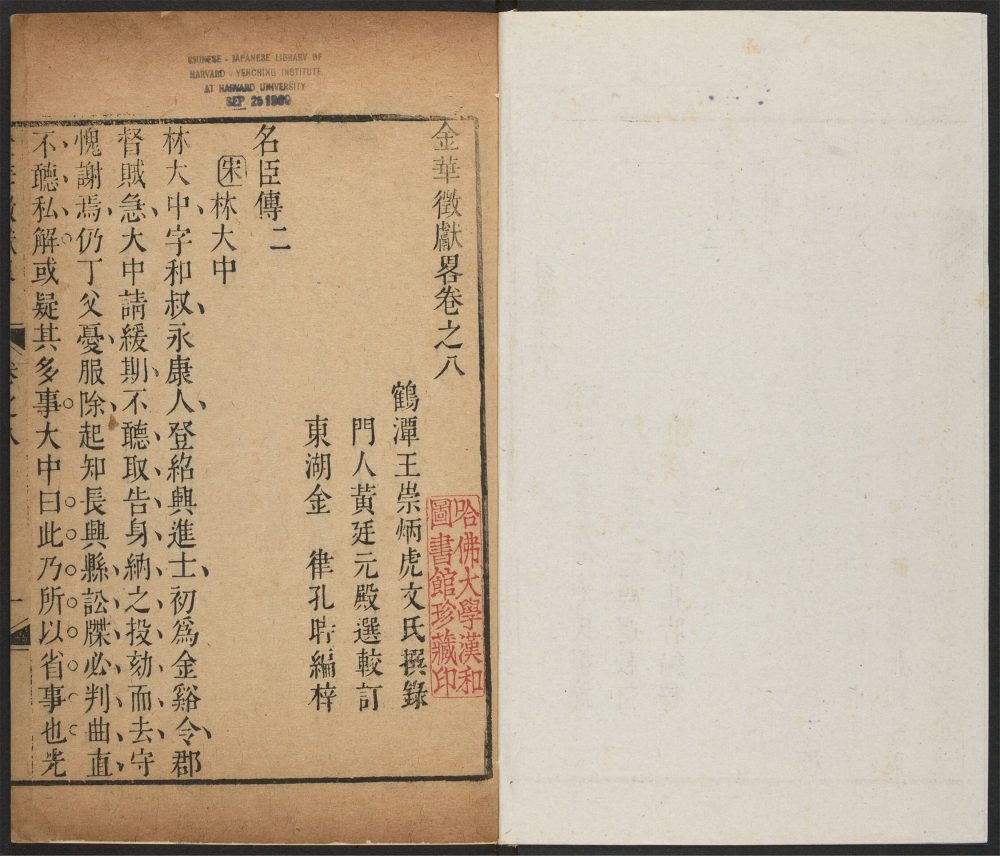 CHINESE - JAPANESE LIBRARY OF
HARVARD - YENCHING INSTITUTE
AT HARVARD UNIVERSITY
SEP 25 1969
金華徵獻畧卷之八
鶴潭王崇炳虎文氏撰錄
門人黃廷元殿選較訂
東湖金　律孔時編梓
哈佛大學漢和
圖書館珍藏印
名臣傳二
宋 林大中
林大中字和叔永康人登紹興進士初爲金谿令郡
督賊急大中請緩期不聽取告身納之投劾而去守
愧謝焉仍丁父憂服除起知長興縣訟牒必判曲直
不聽私解或疑其多事大中曰此乃所以省事也光
卷之八
一